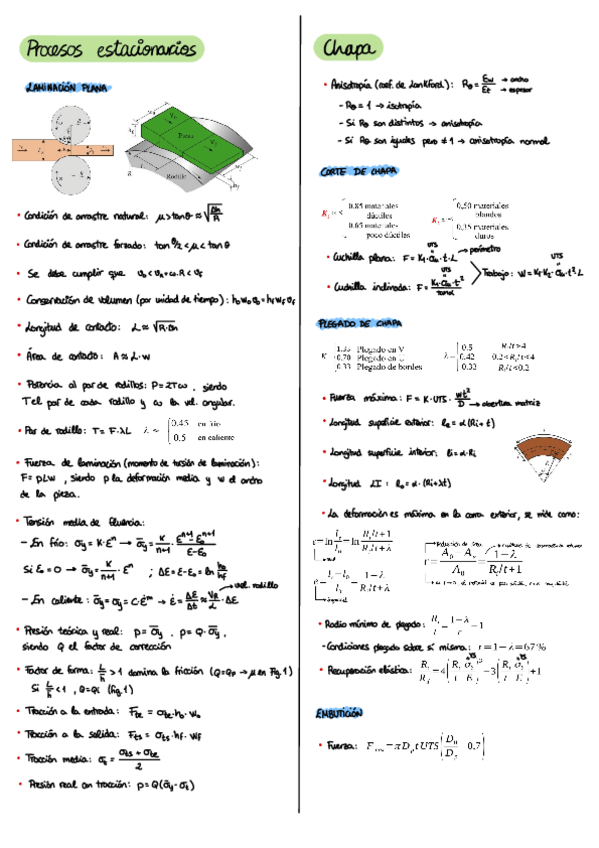 Procesos estacionarios
LAMINACIÓN PLANA
Pieza
Rodillo
R
• Condición de arrastre natural: μ > tan θ ≈ √(Δh/R)
• Condición de arrastre forzado: tan θ/2 < μ < tan θ
• Se debe cumplir que v₀ < vR = ω·R < vf
• Conservación de volumen (por unidad de tiempo): h₀w₀v₀ = hf wf vf
• Longitud de contacto: L ≈ √(R·Δh)
• Área de contacto: A ≈ L·w
• Potencia al par de rodillos: P = 2Tω, siendo
T el par de cada rodillo y ω la vel. angular.
• Par de rodillo: T = F·λL λ ≈ { 0.45 en frío
0.5 en caliente
• Fuerza de laminación (momento de torsión de laminación):
F = pLw, siendo p la deformación media y w el ancho
de la pieza.
• Tensión media de fluencia:
– En frío: σy = K·εⁿ → σ̄y = K/(n+1) · (εⁿ⁺¹ - ε₀ⁿ⁺¹)/(ε - ε₀)
Si ε₀ = 0 → σ̄y = K/(n+1) · εⁿ ; Δε = ε - ε₀ = ln h₀/hf
vel. rodillo
– En caliente: σ̄y = σy = C·ε̇ᵐ → ε̇ = Δε/Δt ≈ vR/L · Δε
• Presión teórica y real: p = σ̄y, p = Q·σ̄y,
siendo Q el factor de corrección
• Factor de forma: L/h > 1 domina la fricción (Q = Qp → μ en Fig. 1)
Si L/h < 1, Q = Qi (Fig. 1)
• Tracción a la entrada: Fte = σte·h₀·w₀
• Tracción a la salida: Fts = σts·hf·wf
• Tracción media: σt = (σts + σte)/2
• Presión real con tracción: p = Q(σ̄y - σt)
Chapa
• Anisotropía (coef. de Lankford): Rθ = εw/εt → ancho → espesor
– Rθ = 1 → isotropía
– Si Rθ son distintos → anisotropía
– Si Rθ son iguales pero ≠ 1 → anisotropía normal
CORTE DE CHAPA
K₁ = { 0.85 materiales dúctiles
0.65 materiales poco dúctiles
K₂ = { 0,50 materiales blandos
0,35 materiales duros
UTS perímetro
• Cuchilla plana: F = K₁·σu·t·L
UTS
Trabajo: W = K₁K₂·σu·t²·L
• Cuchilla inclinada: F = K₁·σu·t²/tanα
PLEGADO DE CHAPA
K { 1.33 Plegado en V
0.70 Plegado en U
0.33 Plegado de bordes
λ = { 0.5 Ri/t>4
0.42 0.2<Ri/t<4
0.33 Ri/t<0.2
• Fuerza máxima: F = K·UTS·wt²/D → abertura matriz
• Longitud superficie exterior: le = α(Ri + t)
• Longitud superficie interior: li = α·Ri
• Longitud LI: l₀ = α·(Ri + λt)
• La deformación es máxima en la cara exterior, se mide como:
ε = ln le/l₀ = ln (Ri/t + 1)/(Ri/t + λ)
e = (le - l₀)/l₀ = (1 - λ)/(Ri/t + λ)
r = (A₀ - Af)/A₀ = (1 - λ)/(Ri/t + 1)
• Radio mínimo de plegado: Ri/t = (1 - λ)/r - 1
– Condiciones plegado sobre sí misma: r = 1 - λ = 67%
• Recuperación elástica: Ri/Rf = 4(Ri/t σy/E)³ - 3(Ri/t σy/E) + 1
EMBUTICIÓN
• Fuerza: Fmax = πDp t UTS(D₀/Dp - 0.7)